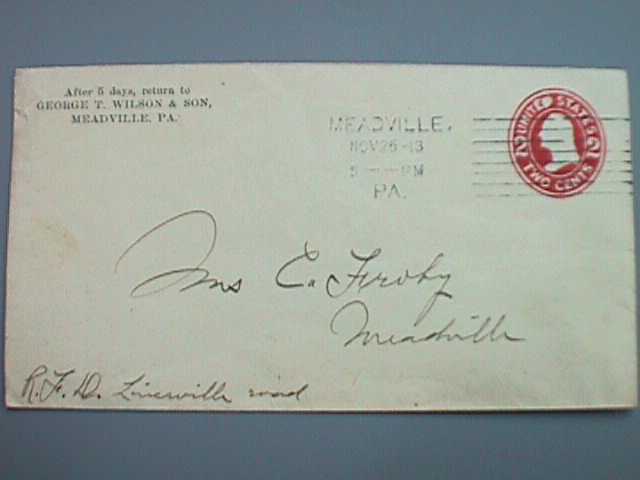 After 5 days, return to
GEORGE T. WILSON & SON,
MEADVILLE, PA.
MEADVILLE,
NOV 26 13
5 — PM
PA.
UNITED STATES
TWO CENTS
Mrs E. Feroby
Meadville
R.F.D. Linesville road